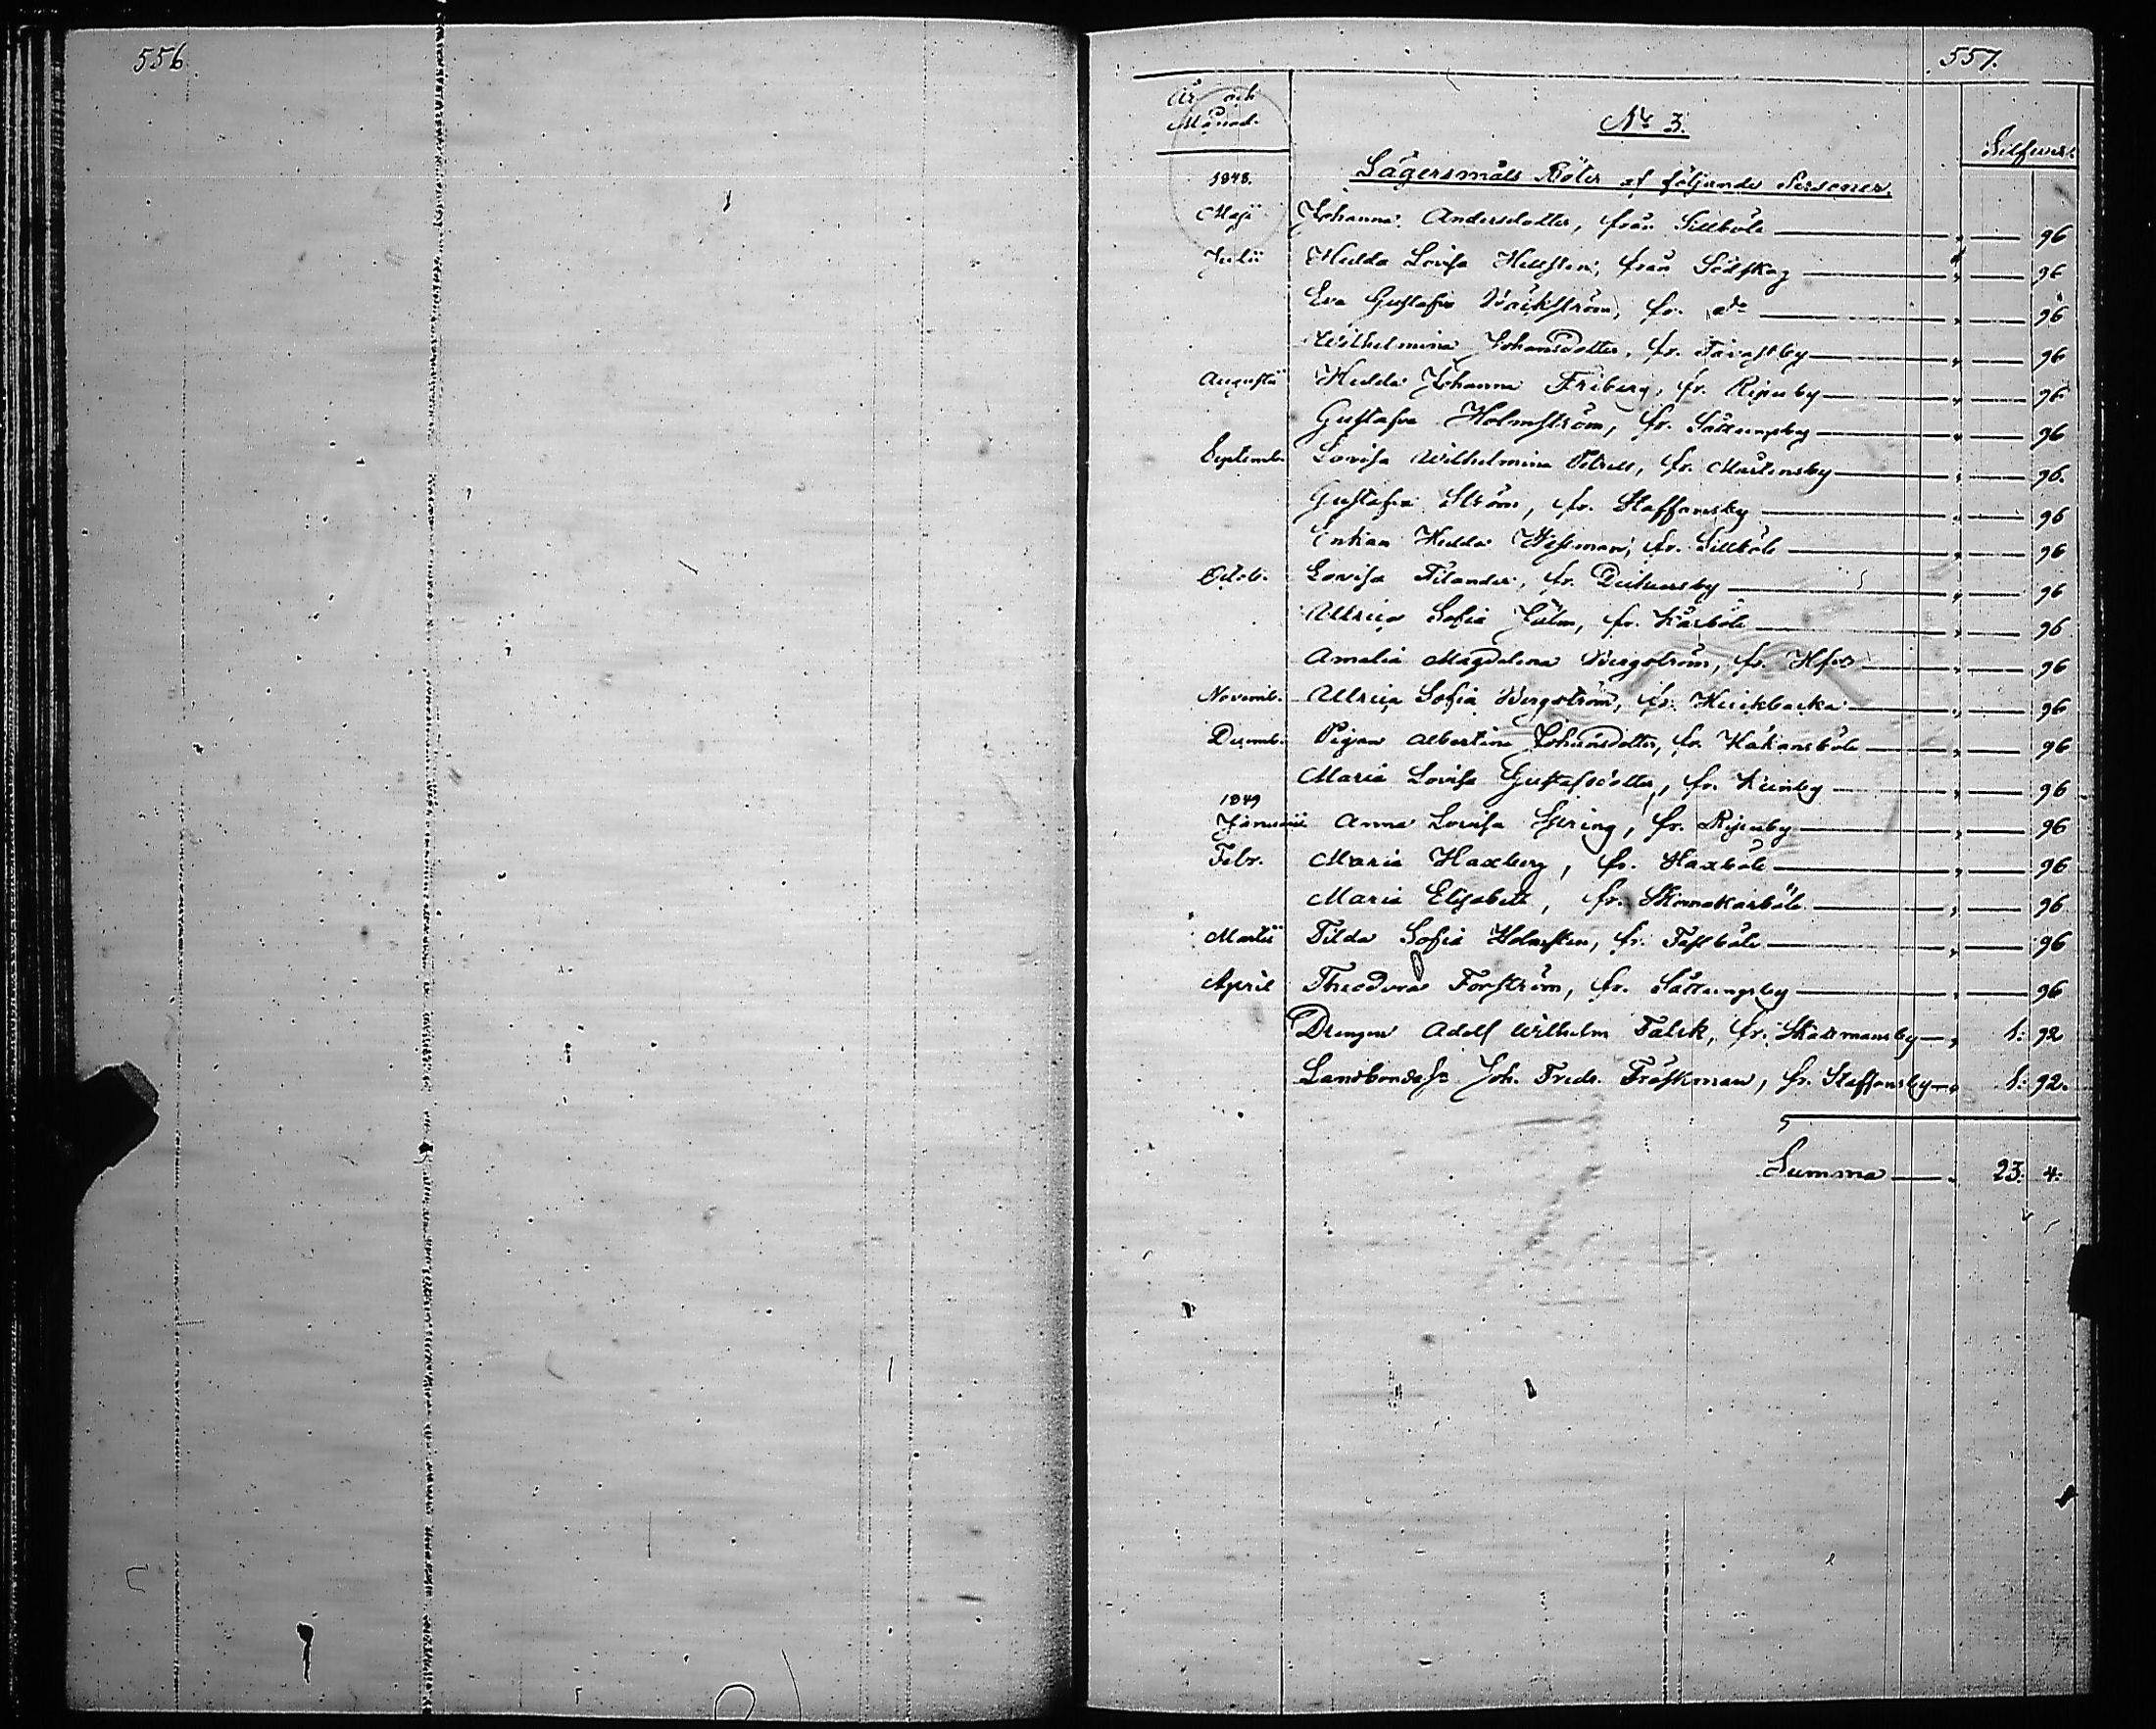 556
557.
År och
Månad.
No 3.
Silfver
1848.
Lägersmåls Böter af följande Personer.
Maji Johanna Andersdotter, från Sillböle — " — 96
Julii Hedda Lovisa Hellsten, från Södskog — " — 96
Eva Gustafva Bäckström, fr. do — " — 96
Wilhelmina Johansdotter, fr. Tavastby — " — 96
Augusti Hedda Johanna Friberg, fr. Ripuby — " — 96
Gustafva Holmström, fr. Sottungsby — " — 96
Septemb. Lovisa Wilhelmina Petrell, fr. Mårtensby — " — 96.
Gustafva Ström, fr. Staffansby — " — 96
Enkan Hedda Wesman, fr. Sillböle — " — 96
Octob. Lovisa Filander, fr. Dickursby — " — 96
Ulrica Sofia Holm, fr. Kårböle — " — 96
Amalia Magdalena Bergström, fr. Hfors — " — 96
Novemb. Ullrica Sofia Bergström, fr. Henrikbacka — " — 96
Decemb. Pigan Albertina Johansdotter, fr. Håkansböle — " — 96
Maria Lovisa Gustafsdotter, fr. — " — 96
1849
Januarii Anna Lovisa Spring, fr. Ripuby — " — 96
Febr. Maria Haxberg, fr. Haxböle — " — 96
Maria Elisabeth, fr. Skomakarböle — " — 96
Martii Tilda Sofia Holmsten, fr. Fastböle — " — 96
April Theodora Forström, fr. Sottungsby — " — 96
Drengen Adolf Wilhelm Falck, fr. Skattmansby — " 1: 92
Landbondes: Joh. Fredr. Fröskman, fr. Staffansby — " 1: 92.
Summa — " 23: 4.